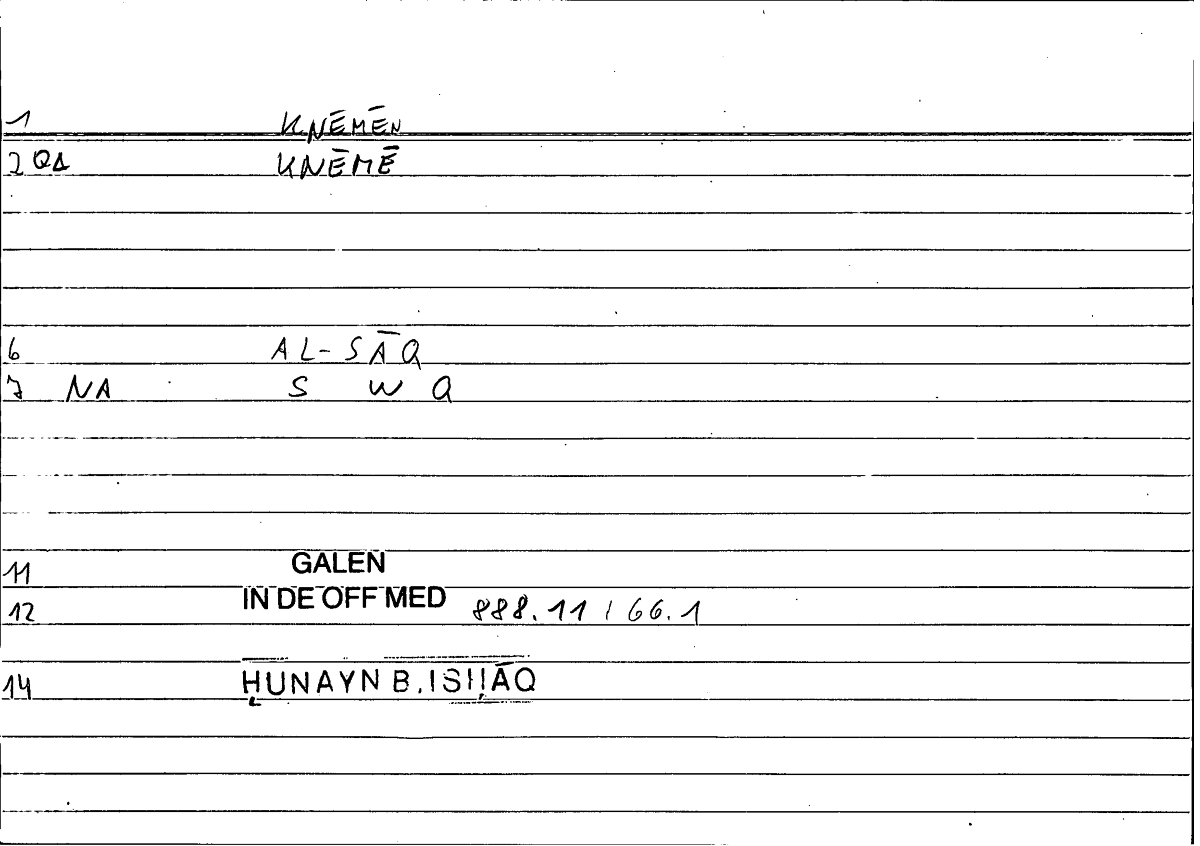 1 KNĒMĒN
2 QA KNĒMĒ
6 AL-SĀQ
7 NA S W Q
11 GALEN
12 IN DE OFF MED 888.11 / 66.1
14 ḤUNAYN B. ISḤĀQ